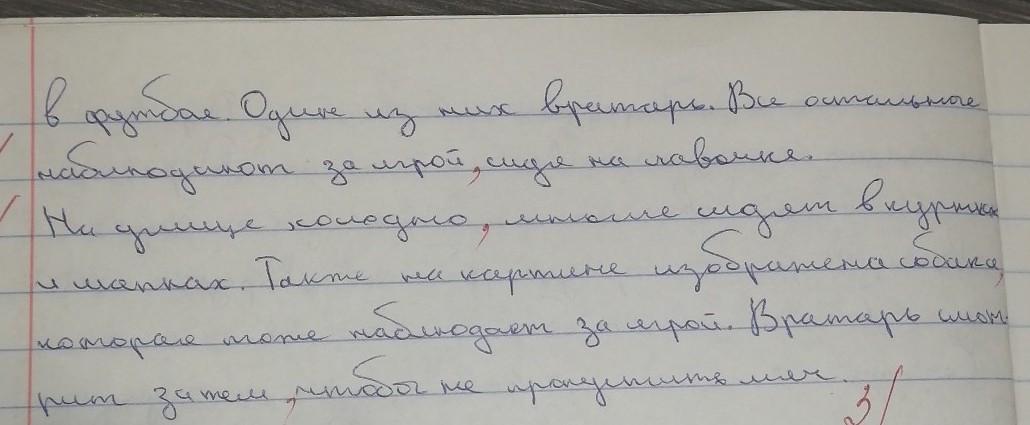 в футбол. Один из них вратарь. Все остальные
наблюдают за игрой, сидя на лавочке.
На улице холодно, многие сидят в куртках
и шапках. Также на картине изображена собака,
которая тоже наблюдает за игрой. Вратарь смот-
рит за тем, чтобы не пропустить мяч.
3/